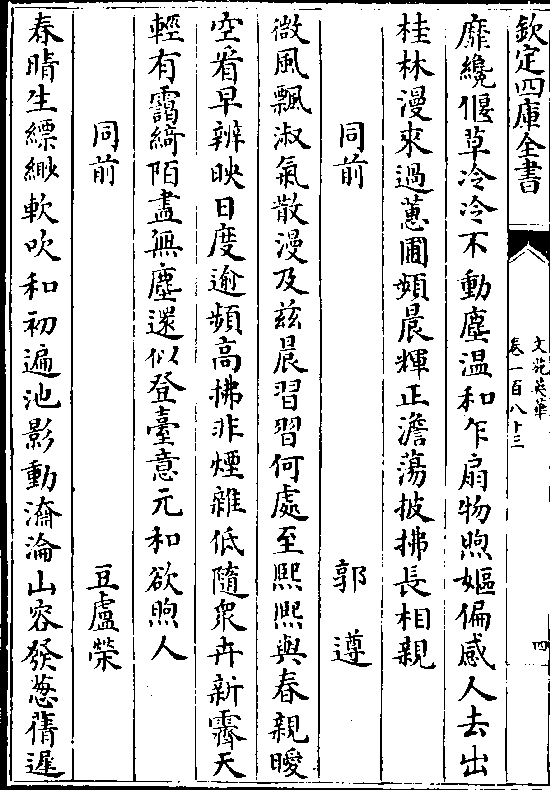 欽定四庫全書
文苑英華
卷一百八十三
四
靡纔偃草冷冷不動塵温和乍扇物煦嫗偏感人去出
桂林漫來過蕙圃頻晨輝正澹蕩披拂長相親
同前 郭遵
微風飄淑氣散漫及兹晨習習何處至熙熙與春親曖
空看早辨映日度逾頻高拂非煙雜低隨衆卉新霽天
輕有靄綺陌盡無塵還似登臺意元和欲煦人
同前 豆盧榮
春晴生縹緲軟吹和初遍池影動淪山容發葱蒨遲